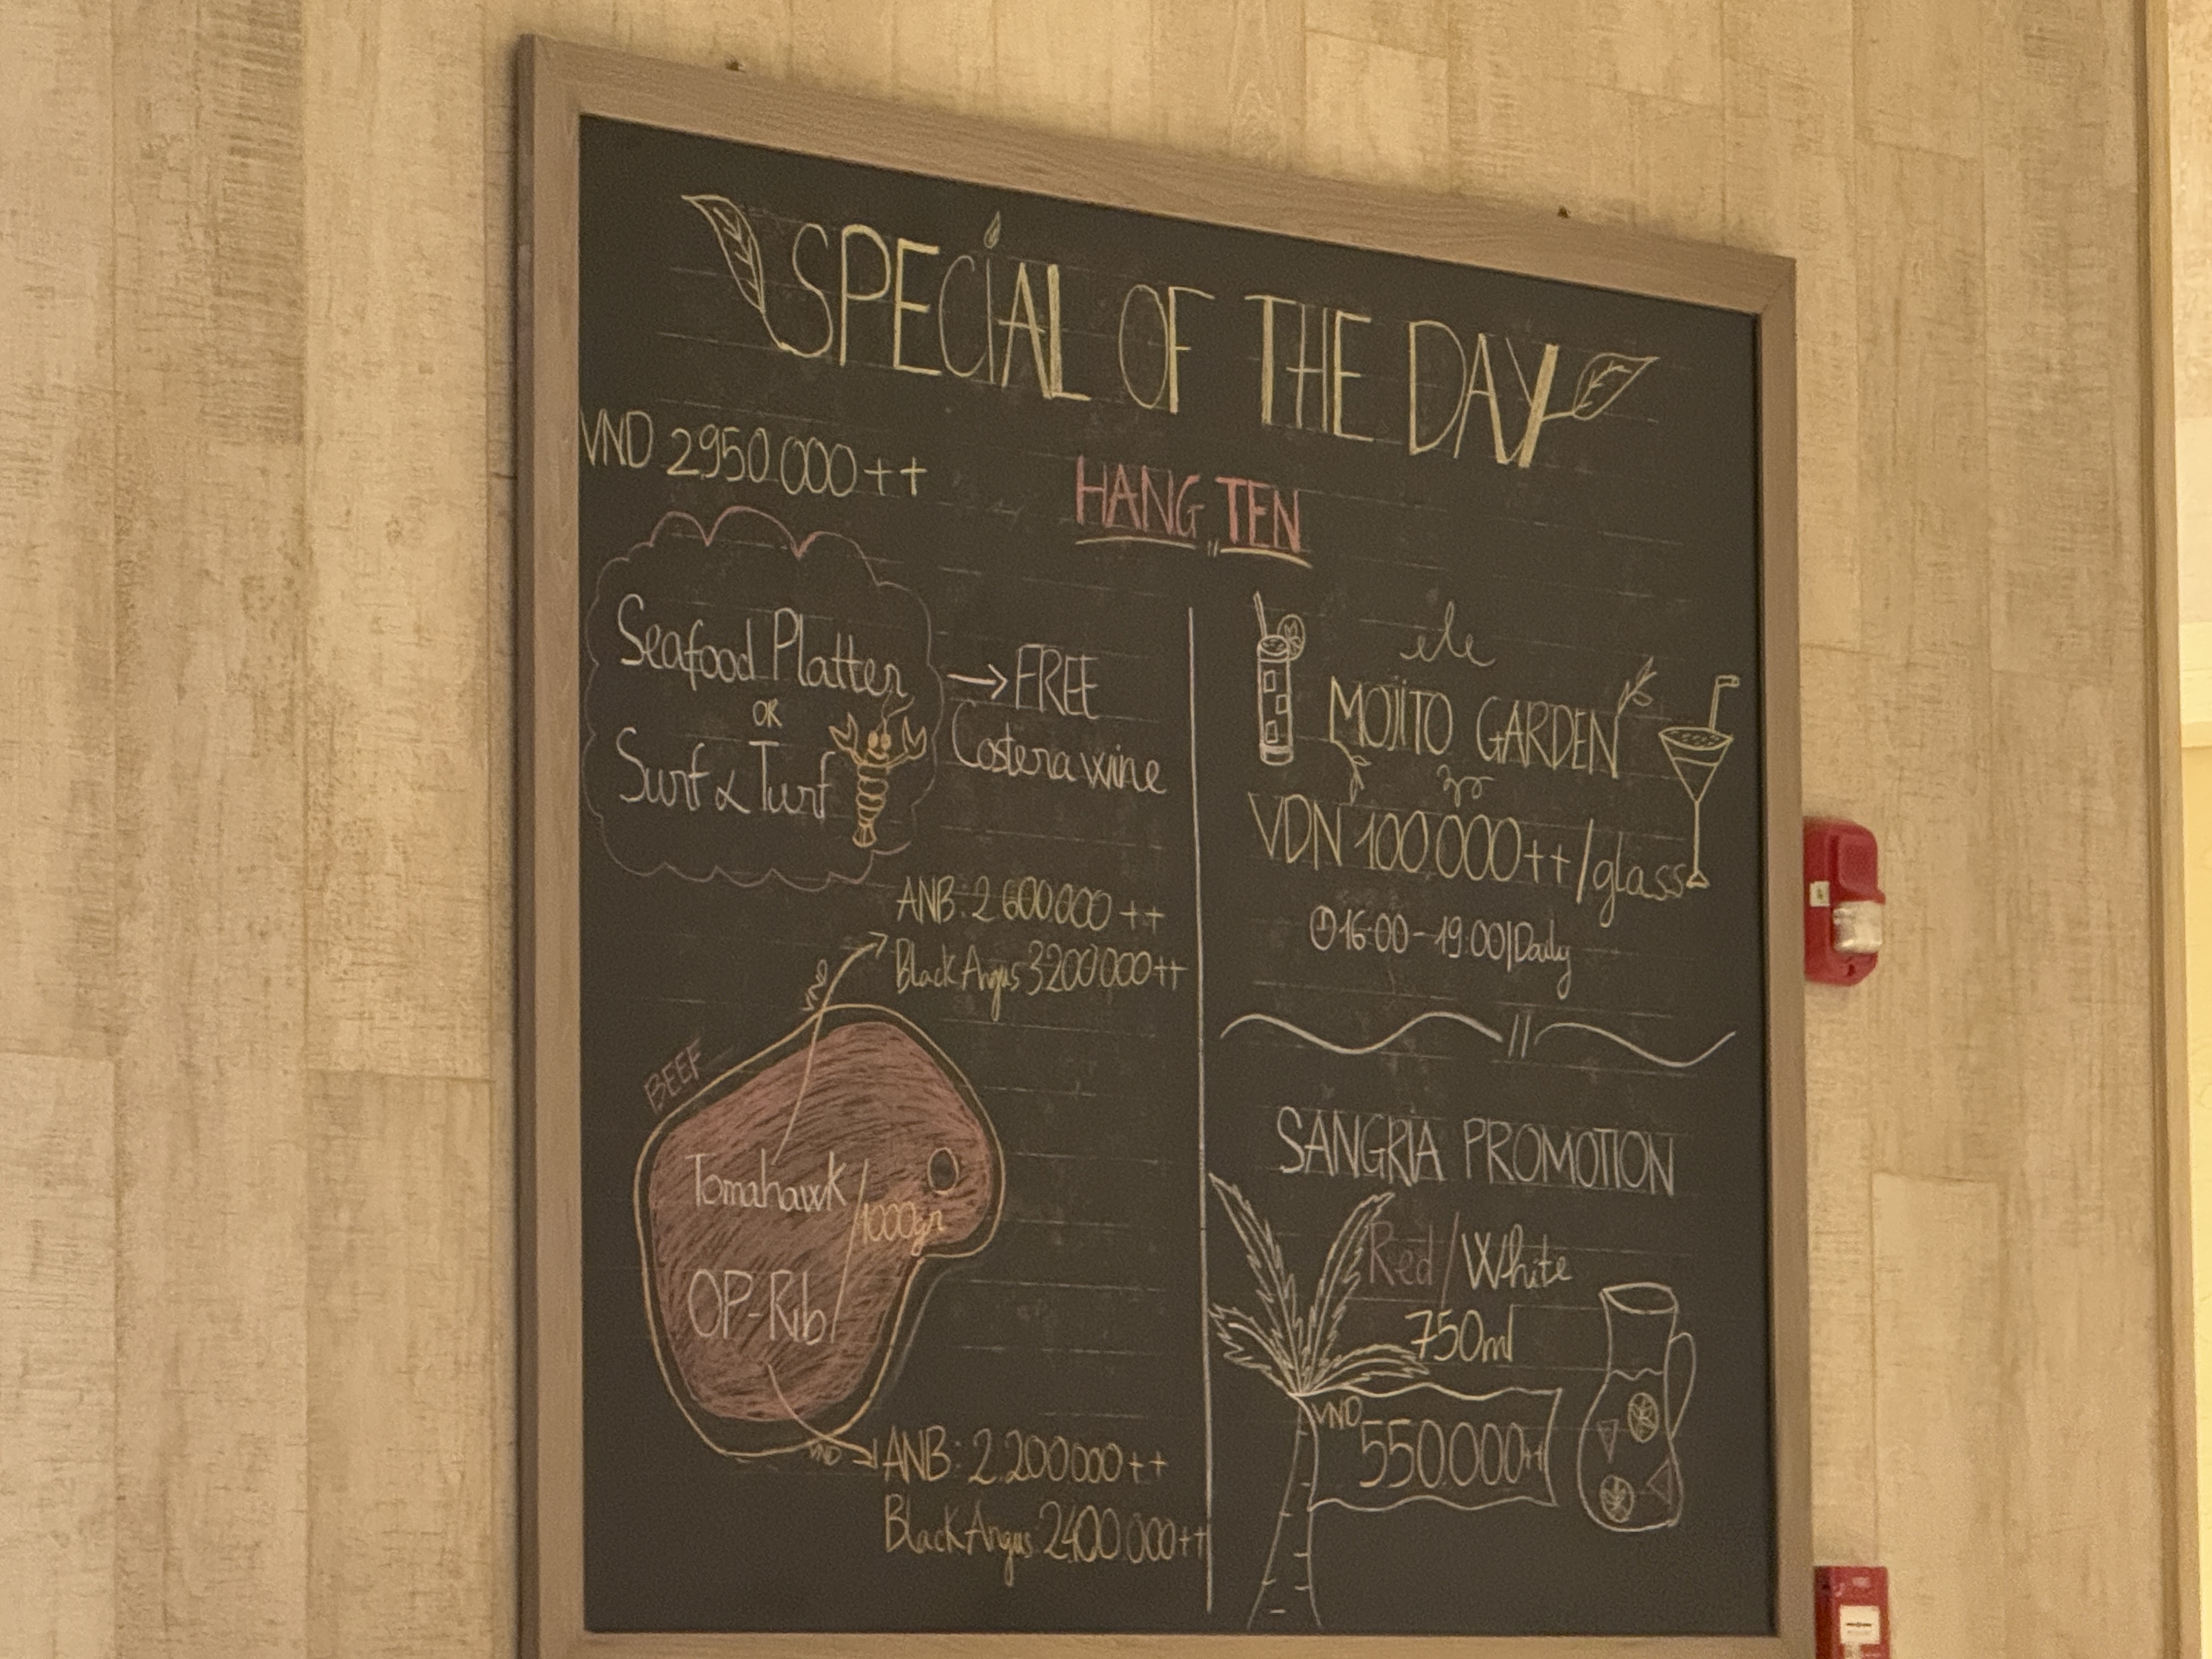 SPECIAL OF THE DAY
VND 2950.000++
HANG TEN
Seafood Platter
OR
Surf & Turf
→ FREE
Costera wine
ANB: 2.600.000 ++
Black Angus 3200.000++
VND
BEEF
Tomahawk
/1000gr
OP-Rib
VND
ANB: 2.200.000++
Black Angus: 2400.000++
MOJITO GARDEN
VDN 100.000++/glass
16:00-19:00|Daily
SANGRIA PROMOTION
Red/White
750ml
VND
550.000++